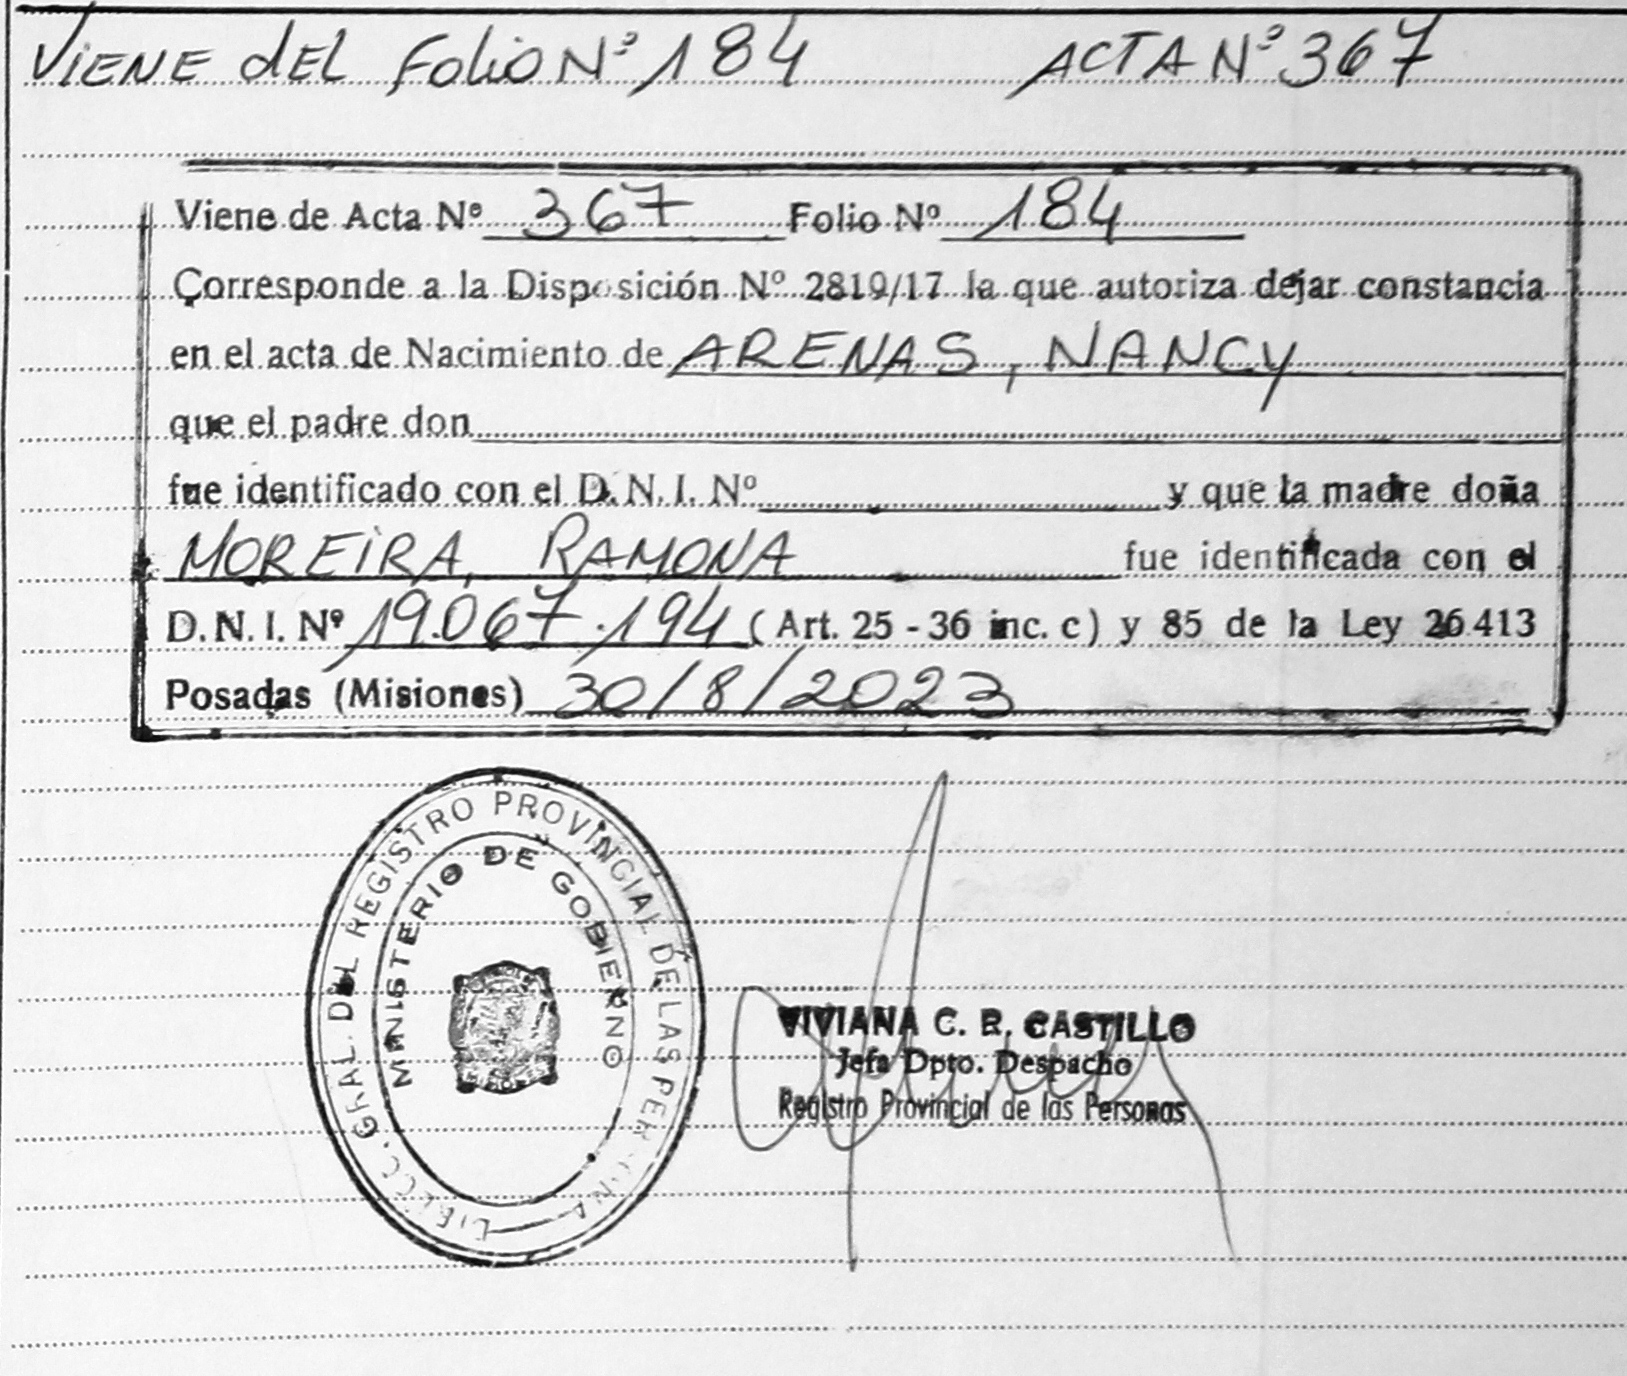 VIENE dEL Folio Nº 184 ACTA Nº 367
Viene de Acta Nº 367 Folio Nº 184
Corresponde a la Disposición Nº 2819/17 la que autoriza dejar constancia
en el acta de Nacimiento de ARENAS, NANCY
que el padre don
fue identificado con el D.N.I. Nº y que la madre doña
MOREIRA, RAMONA fue identificada con el
D.N.I. Nº 19.067.194 (Art. 25 - 36 inc. c) y 85 de la Ley 26.413
Posadas (Misiones) 30/8/2023
GRAL. DEL REGISTRO PROVINCIAL DE LAS
MINISTERIO DE GOBIERNO
VIVIANA C. R. CASTILLO
Jefa Dpto. Despacho
Registro Provincial de las Personas